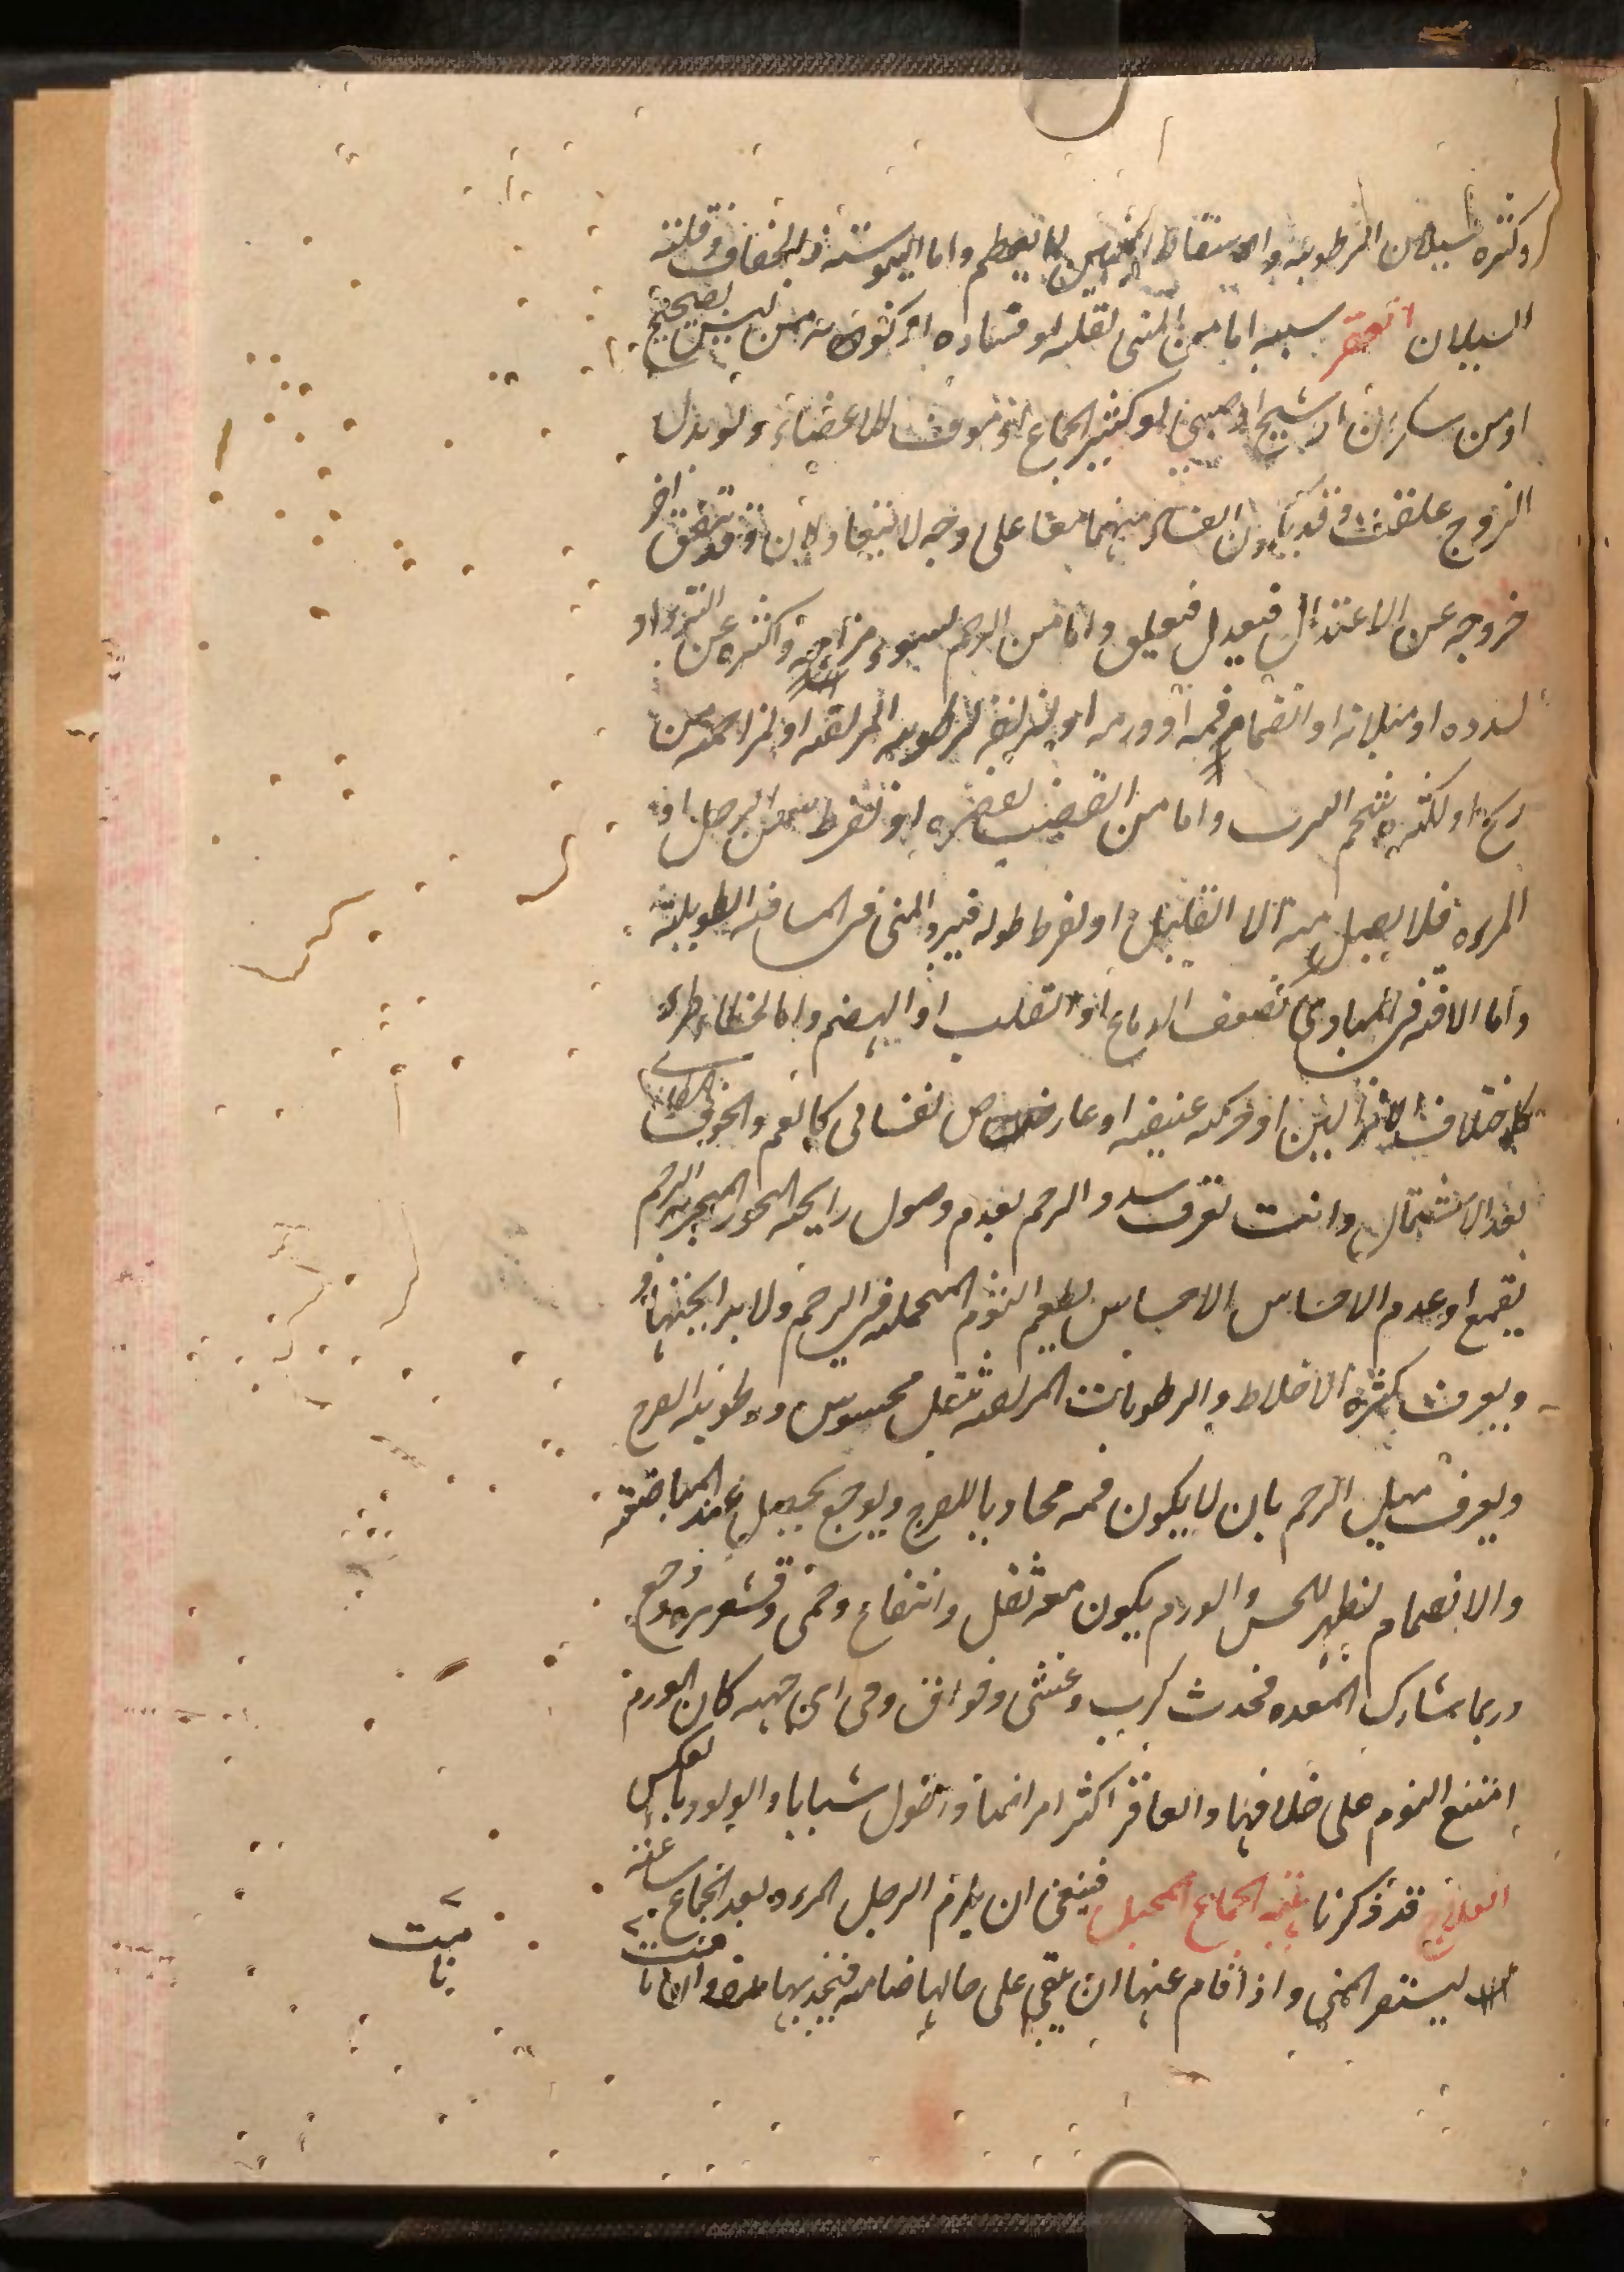 وكثره سيلان الرطوبه والاسقاط الجنين كما يعظم واما اليبوسته فالجفاف وقلته
السيلان العقر سببه اما من المنى لقله او فساده او كونه ممن ليس بصحيح
او من سكران او شيخ او صبى او كثير الجماع او مووف الاعضاء ولو بدل
الزوج علقت وقد يكون الفساد منهما معا على وجه لا يتعادلان وقد يتفق اخر
خروجه عن الاعتدال فيعدل فتعلق واما من الرحم لسوء مزاجه واكثره عن البرد او
لسدده او ميلانه او انضمام فمه او ورمه او لرطوبه المزلقه او لمزاحمه من
ريح او لكثره شحم الثرب واما من القضيب لقصره او لفرط سمن الرجل او
المرءه فلا يصل منه الا القليل او لفرط طوله فيبرد المنى فى المسافه الطويلته
واما الافه فى المبادى كضعف الدماغ او القلب او الهضم واما لخطاء طرء
كاختلاف الانزالين او حركه عنيفه او عارض نفسانى كالغم والخوف
بعد الاشتمال وانت تعرف سدد الرحم بعدم وصول رايحه البخور المبخر به الرحم
بقمع او عدم الاحساس بطعم الثوم المحمله فى الرحم ولا برايحتها
ويعرف كثره الاخلاط والرطوبات المزلقه بثقل محسوس ورطوبه الفرج
ويعرف ميل الرحم بان لا يكون فمه محاديا للفرج ويوجع يحصل عند المباضعه
والانضمام يظهر للحس والورم يكون معه ثقل وانتفاخ وحمى وقشعريره ووجع
وربما يشارك المعده فحدث كرب وغثى وفواق وفى اى جهه كان الورم
امتنع النوم على خلافها والعاقر اكثر امراضا واطول شبابا والولود بالعكس
العلاج قد ذكرنا هيئه الجماع المحبل فينبغى ان يلزم الرجل المرءه بعد الجماع ساعته
ليستقر المنى واذا قام عنها ان تبقى على حالها ضامه فخذيها وان نامت